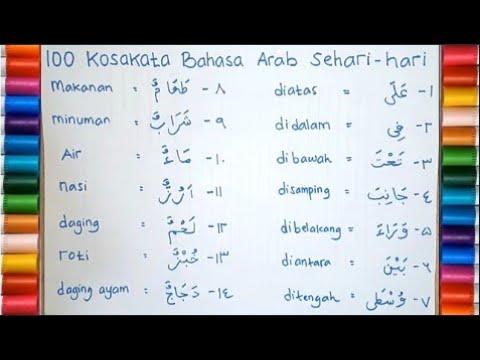 100 Kosakata Bahasa Arab Sehari-hari
١- عَلَى = diatas
٢- فِى = didalam
٣- تَحْتَ = dibawah
٤- جَانِبَ = disamping
٥- وَرَاءَ = dibelakang
٦- بَيْنَ = diantara
٧- وُسْطَى = ditengah
٨- طَعَامٌ : Makanan
٩- شَرَابٌ : minuman
١٠- مَاءٌ : Air
١١- اَرُزٌّ : nasi
١٢- لَحْمٌ : daging
١٣- خُبْزٌ : roti
١٤- دَجَاجٌ : daging ayam